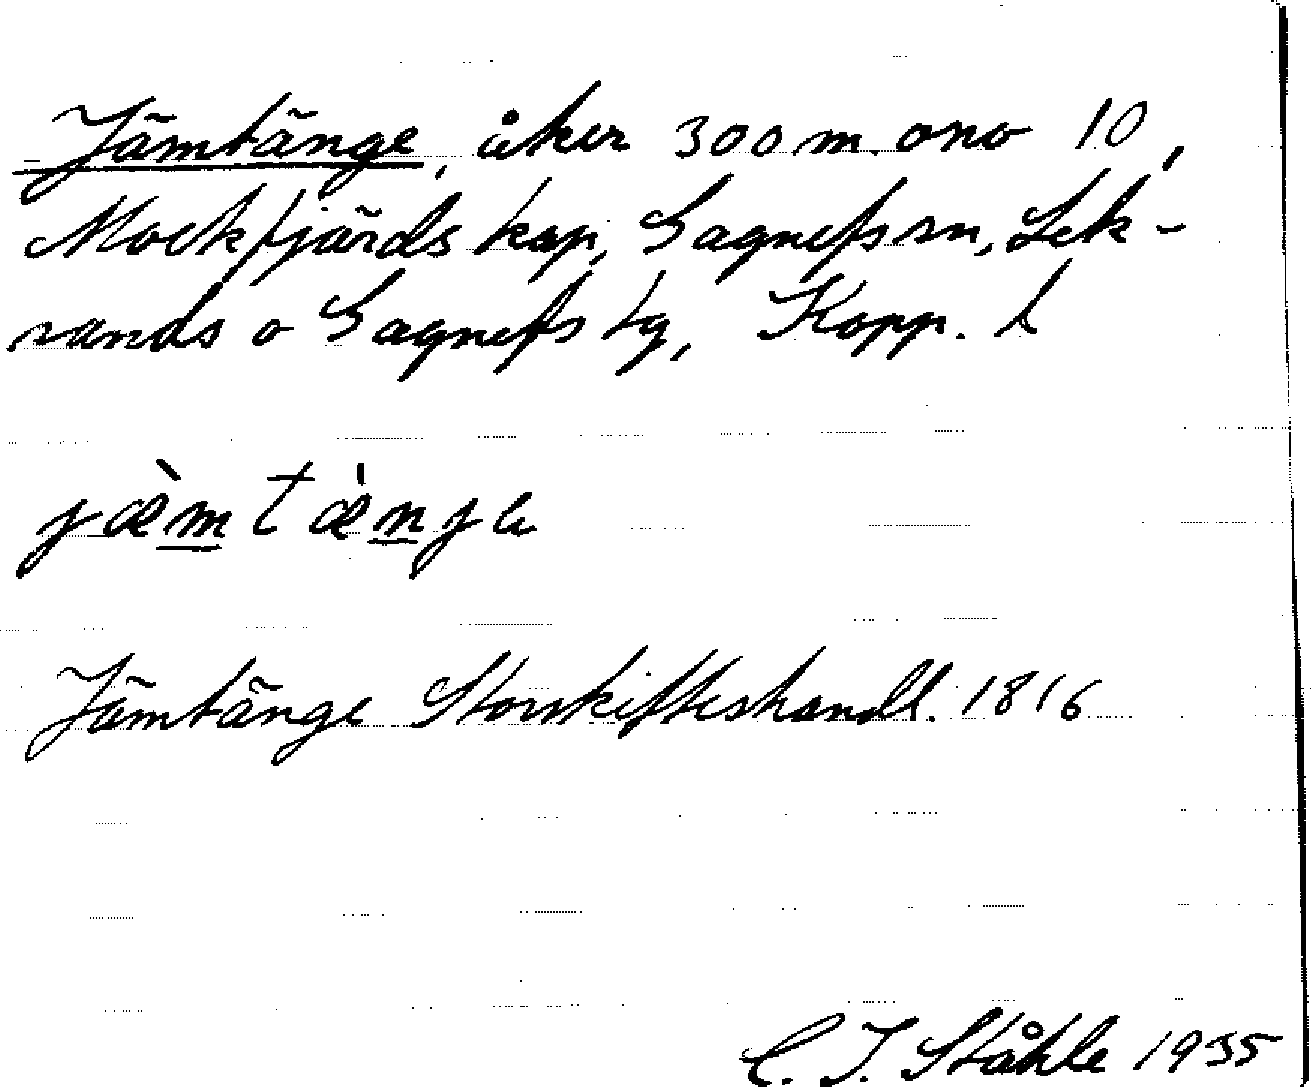 Jämtänge, åker 300 m. ono 10,
Mockfjärds kap, Gagnefs sn, Lek-
sands o Gagnefs tg, Kopp. l
jæ̀mtæ̀njə
Jämtänge Storskifteshandl. 1816
C. I. Ståhle 1935